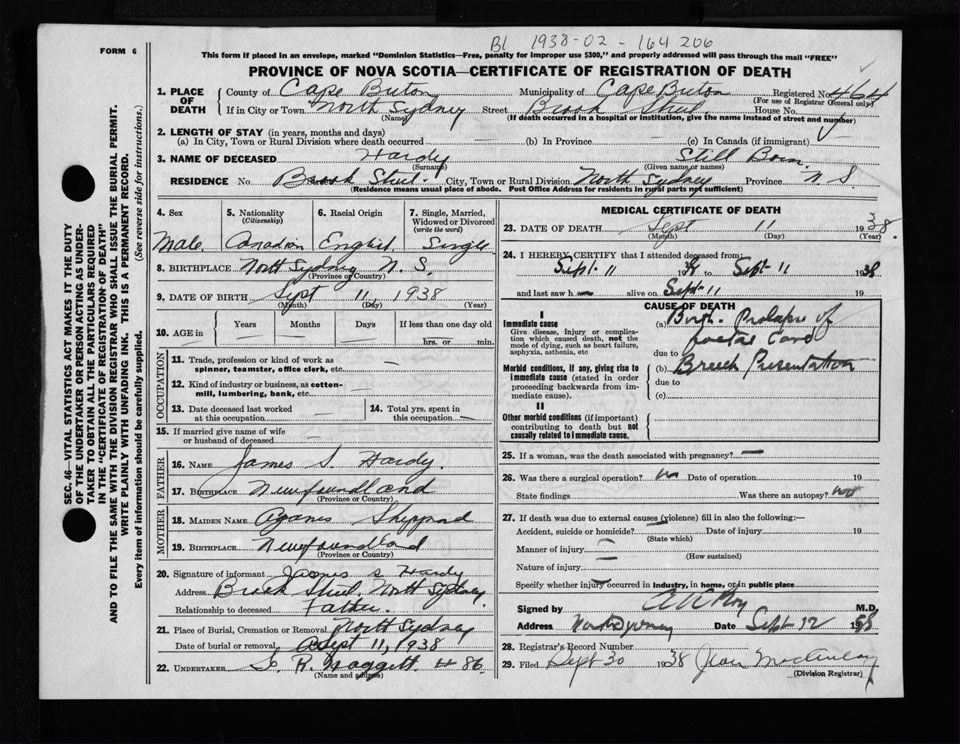 B1 1938-02-164206
FORM 6
This form if placed in an envelope, marked "Dominion Statistics—Free, penalty for improper use $300," and properly addressed will pass through the mail "FREE"
PROVINCE OF NOVA SCOTIA—CERTIFICATE OF REGISTRATION OF DEATH
1. PLACE OF DEATH County of Cape Breton Municipality of Cape Breton Registered No. 464
(For use of Registrar General only)
If in City or Town North Sydney Street Brook Street House No.
(Name) (If death occurred in a hospital or institution, give the name instead of street and number)
2. LENGTH OF STAY (in years, months and days)
(a) In City, Town or Rural Division where death occurred (b) In Province (c) In Canada (if immigrant)
3. NAME OF DECEASED Hardy Still Born
(Surname) (Given name or names)
RESIDENCE No. Brook Street City, Town or Rural Division North Sydney Province N S
(Residence means usual place of abode. Post Office Address for residents in rural parts not sufficient)
4. Sex 5. Nationality (Citizenship) 6. Racial Origin 7. Single, Married, Widowed or Divorced (write the word)
Male Canadian English Single
8. BIRTHPLACE North Sydney N. S.
(Province or Country)
9. DATE OF BIRTH Sept 11, 1938
(Month) (Day) (Year)
10. AGE in Years Months Days If less than one day old
hrs. or min.
OCCUPATION
11. Trade, profession or kind of work as spinner, teamster, office clerk, etc. —
12. Kind of industry or business, as cotton-mill, lumbering, bank, etc. —
13. Date deceased last worked at this occupation — 14. Total yrs. spent in this occupation —
15. If married give name of wife or husband of deceased —
FATHER
16. NAME James S. Hardy.
17. BIRTHPLACE Newfoundland
(Province or Country)
MOTHER
18. MAIDEN NAME Agnes Sheppard
19. BIRTHPLACE Newfoundland
(Province or Country)
20. Signature of informant James S Hardy
Address Brook Street North Sydney.
Relationship to deceased Father.
21. Place of Burial, Cremation or Removal North Sydney
Date of burial or removal Sept 11, 1938
22. UNDERTAKER R. # 86
(Name and address)
MEDICAL CERTIFICATE OF DEATH
23. DATE OF DEATH Sept 11 1938.
(Month) (Day) (Year)
24. I HEREBY CERTIFY that I attended deceased from:
Sept. 11 19 Sept-11 1938
and last saw h alive on Sept-11 19
CAUSE OF DEATH
I
Immediate cause
Give disease, injury or complication which caused death, not the mode of dying, such as heart failure, asphyxia, asthenia, etc
(a) Prolapse of foetal Cord
due to
Morbid conditions, if any, giving rise to immediate cause (stated in order proceeding backwards from immediate cause).
(b) Breech Presentation
due to
(c)
II
Other morbid conditions (if important) contributing to death but not causally related to immediate cause.
25. If a woman, was the death associated with pregnancy? —
26. Was there a surgical operation? no Date of operation 19
State findings Was there an autopsy?
27. If death was due to external causes (violence) fill in also the following:—
Accident, suicide or homicide? Date of injury 19
(State which)
Manner of injury
(How sustained)
Nature of injury
Specify whether injury occurred in industry, in home, or in public place
Signed by M.D.
Address North Sydney Date Sept 12 1938
28. Registrar's Record Number
29. Filed Sept 30 1938 Jean
(Division Registrar)
SEC. 46—VITAL STATISTICS ACT MAKES IT THE DUTY
OF THE UNDERTAKER OR PERSON ACTING AS UNDERTAKER TO OBTAIN ALL THE PARTICULARS REQUIRED
IN THE "CERTIFICATE OF REGISTRATION OF DEATH"
AND TO FILE THE SAME WITH THE DIVISION REGISTRAR WHO SHALL ISSUE THE BURIAL PERMIT.
WRITE PLAINLY WITH UNFADING INK. THIS IS A PERMANENT RECORD.
Every item of information should be carefully supplied. (See reverse side for instructions.)